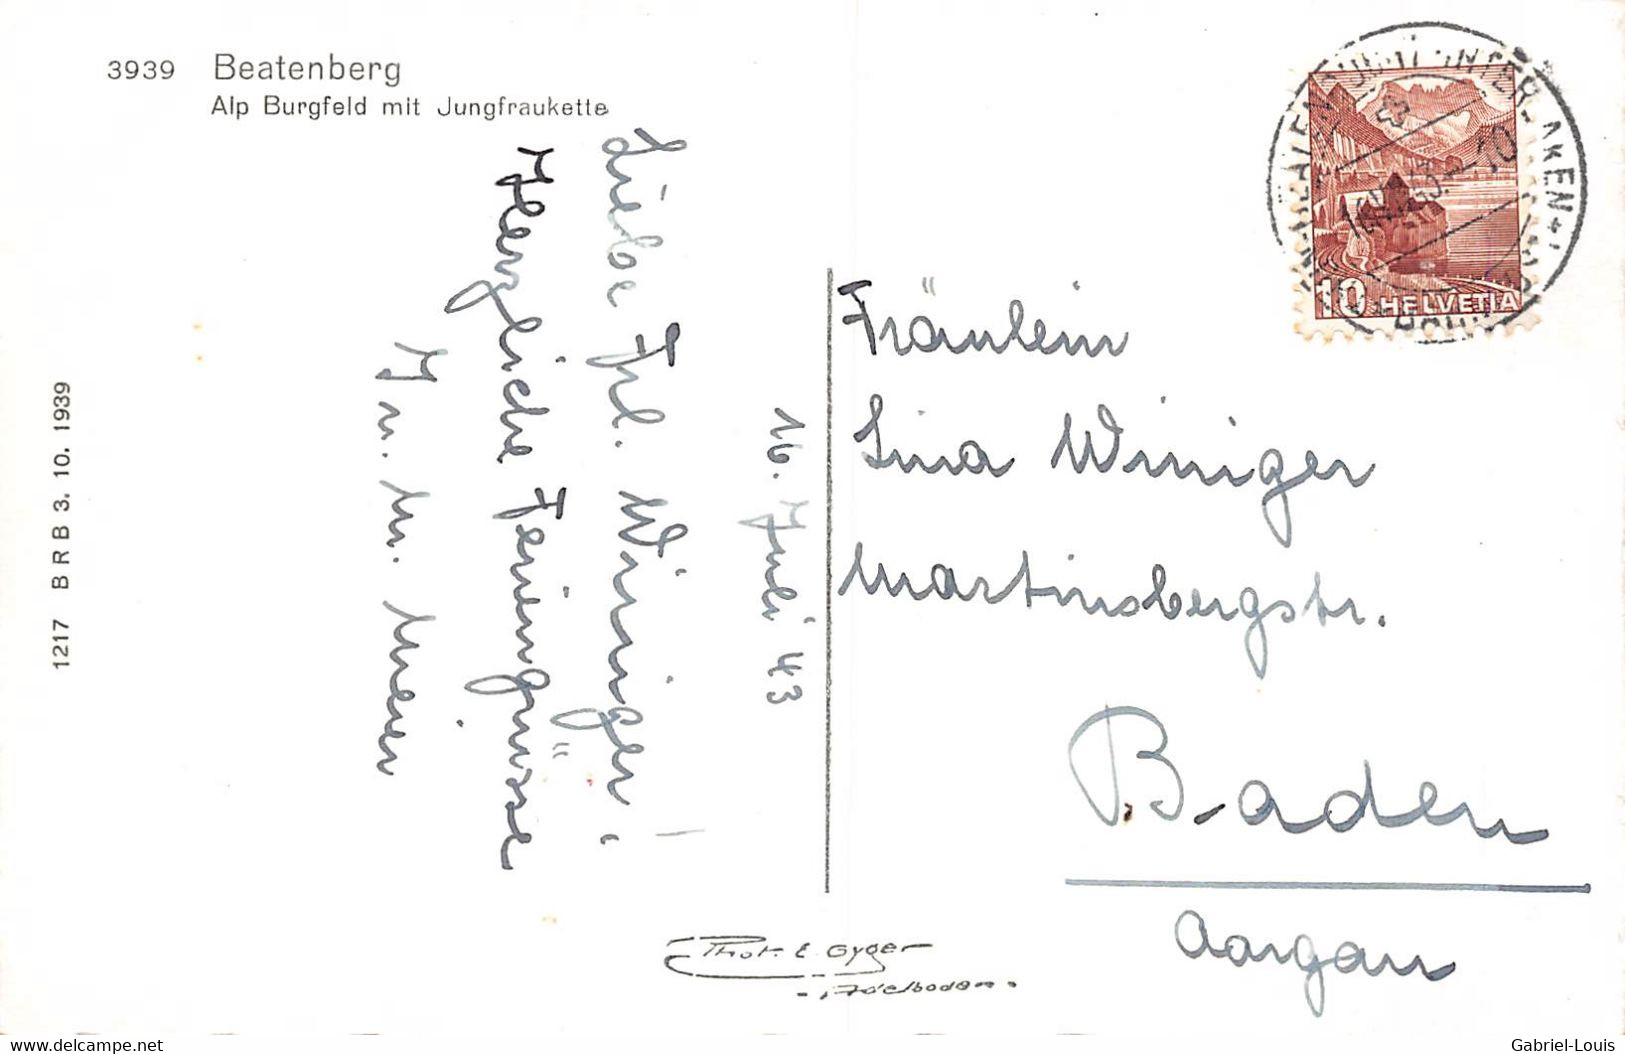 3939 Beatenberg
Alp Burgfeld mit Jungfraukette
1217 B R B 3. 10. 1939
16. Juli 43
Liebe Frl. Winiger!
Herzliche Feriengrüsse
M. Meier
Fräulein
Lina Winiger
Martinsbergstr.
Baden
Aargau
INTERLAKEN
10 HELVETIA
Phot. E. Gyger
Adelboden
www.delcampe.net
Gabriel-Louis